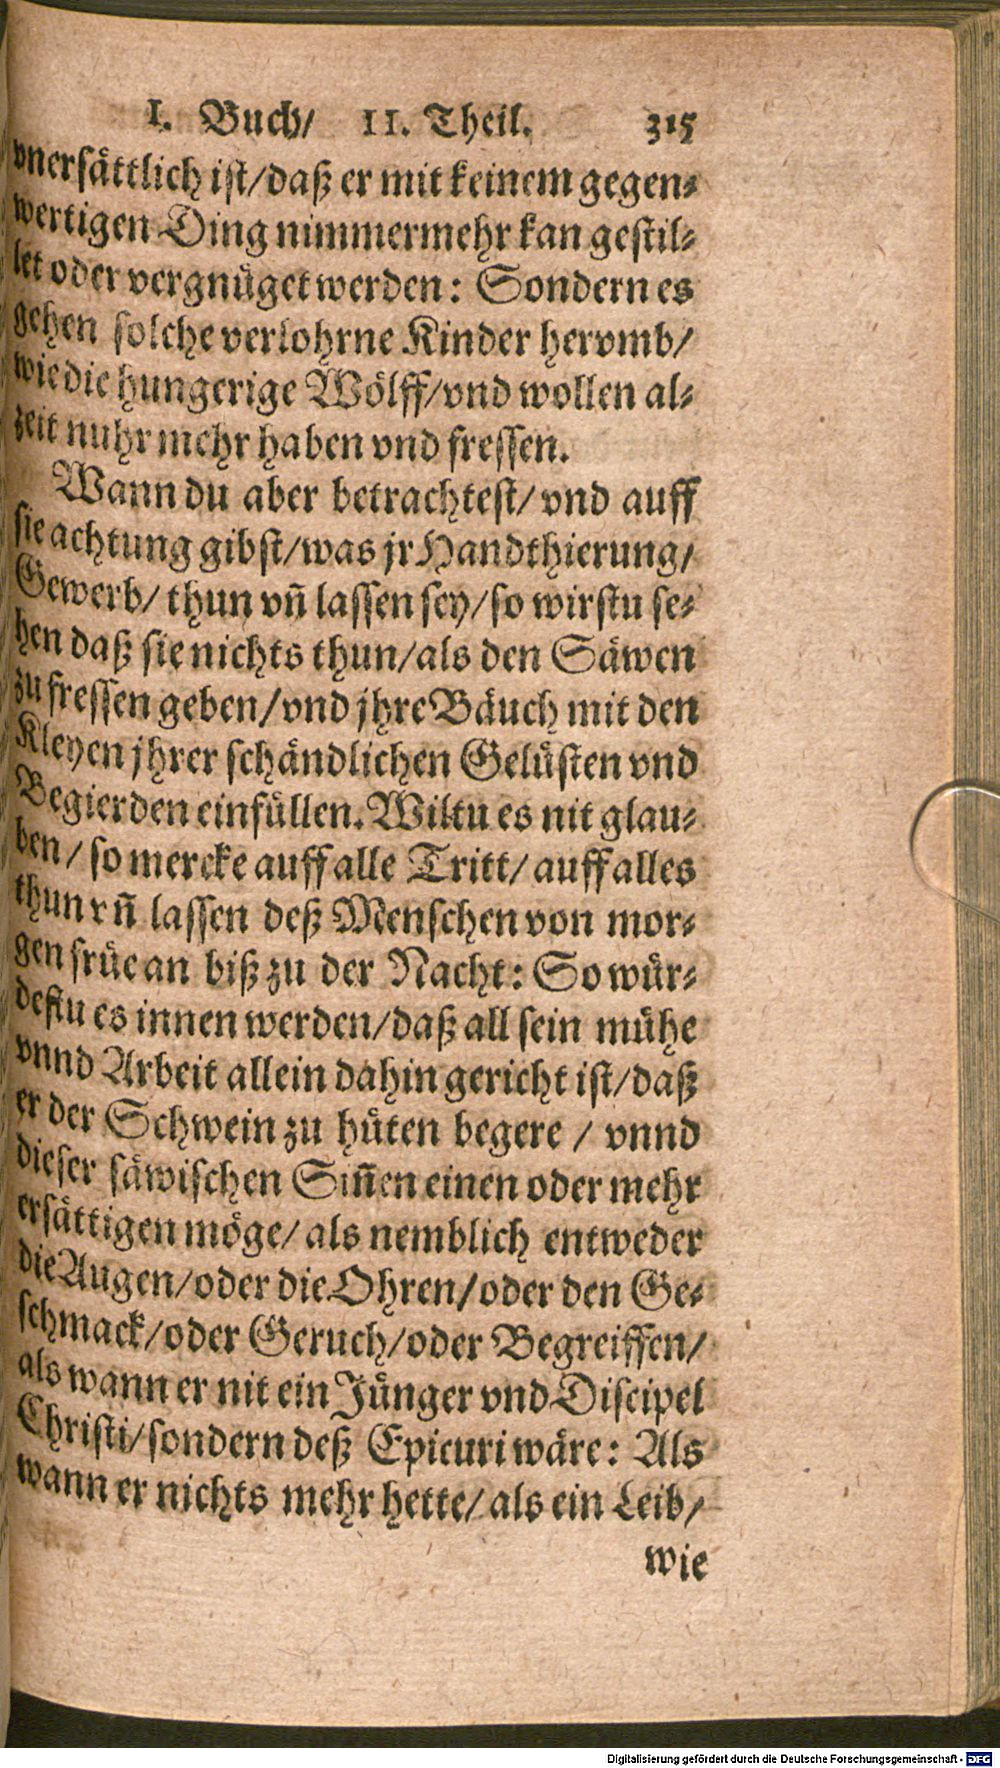 I. Buch/ II. Theil. 315
vnersättlich ist/daß er mit keinem gegen-
wertigen Ding nimmermehr kan gestil-
let oder vergnüget werden: Sondern es
gehen solche verlohrne Kinder hervmb/
wie die hungerige Wölff/vnd wollen al-
zeit nuhr mehr haben vnd fressen.
Wann du aber betrachtest/ vnd auff
sie achtung gibst/was jr Handthierung/
Gewerb/ thun vñ lassen sey/so wirstu se-
hen daß sie nichts thun/als den Säwen
zu fressen geben/vnd jhre Bäuch mit den
Kleyen jhrer schändlichen Gelüsten vnd
Begierden einfüllen. Wiltu es nit glau-
ben/ so mercke auff alle Tritt/ auff alles
thun vñ lassen deß Menschen von mor-
gen früe an biß zu der Nacht: So wür-
destu es innen werden/daß all sein mühe
vnnd Arbeit allein dahin gericht ist/daß
er der Schwein zu hüten begere / vnnd
dieser säwischen Siñen einen oder mehr
ersättigen möge/ als nemblich entweder
die Augen/oder die Ohren/oder den Ge-
schmack/oder Geruch/oder Begreiffen/
als wann er nit ein Jünger vnd Discipel
Christi/sondern deß Epicuri wäre: Als
wann er nichts mehr hette/ als ein Leib/
wie
Digitalisierung gefördert durch die Deutsche Forschungsgemeinschaft - DFG